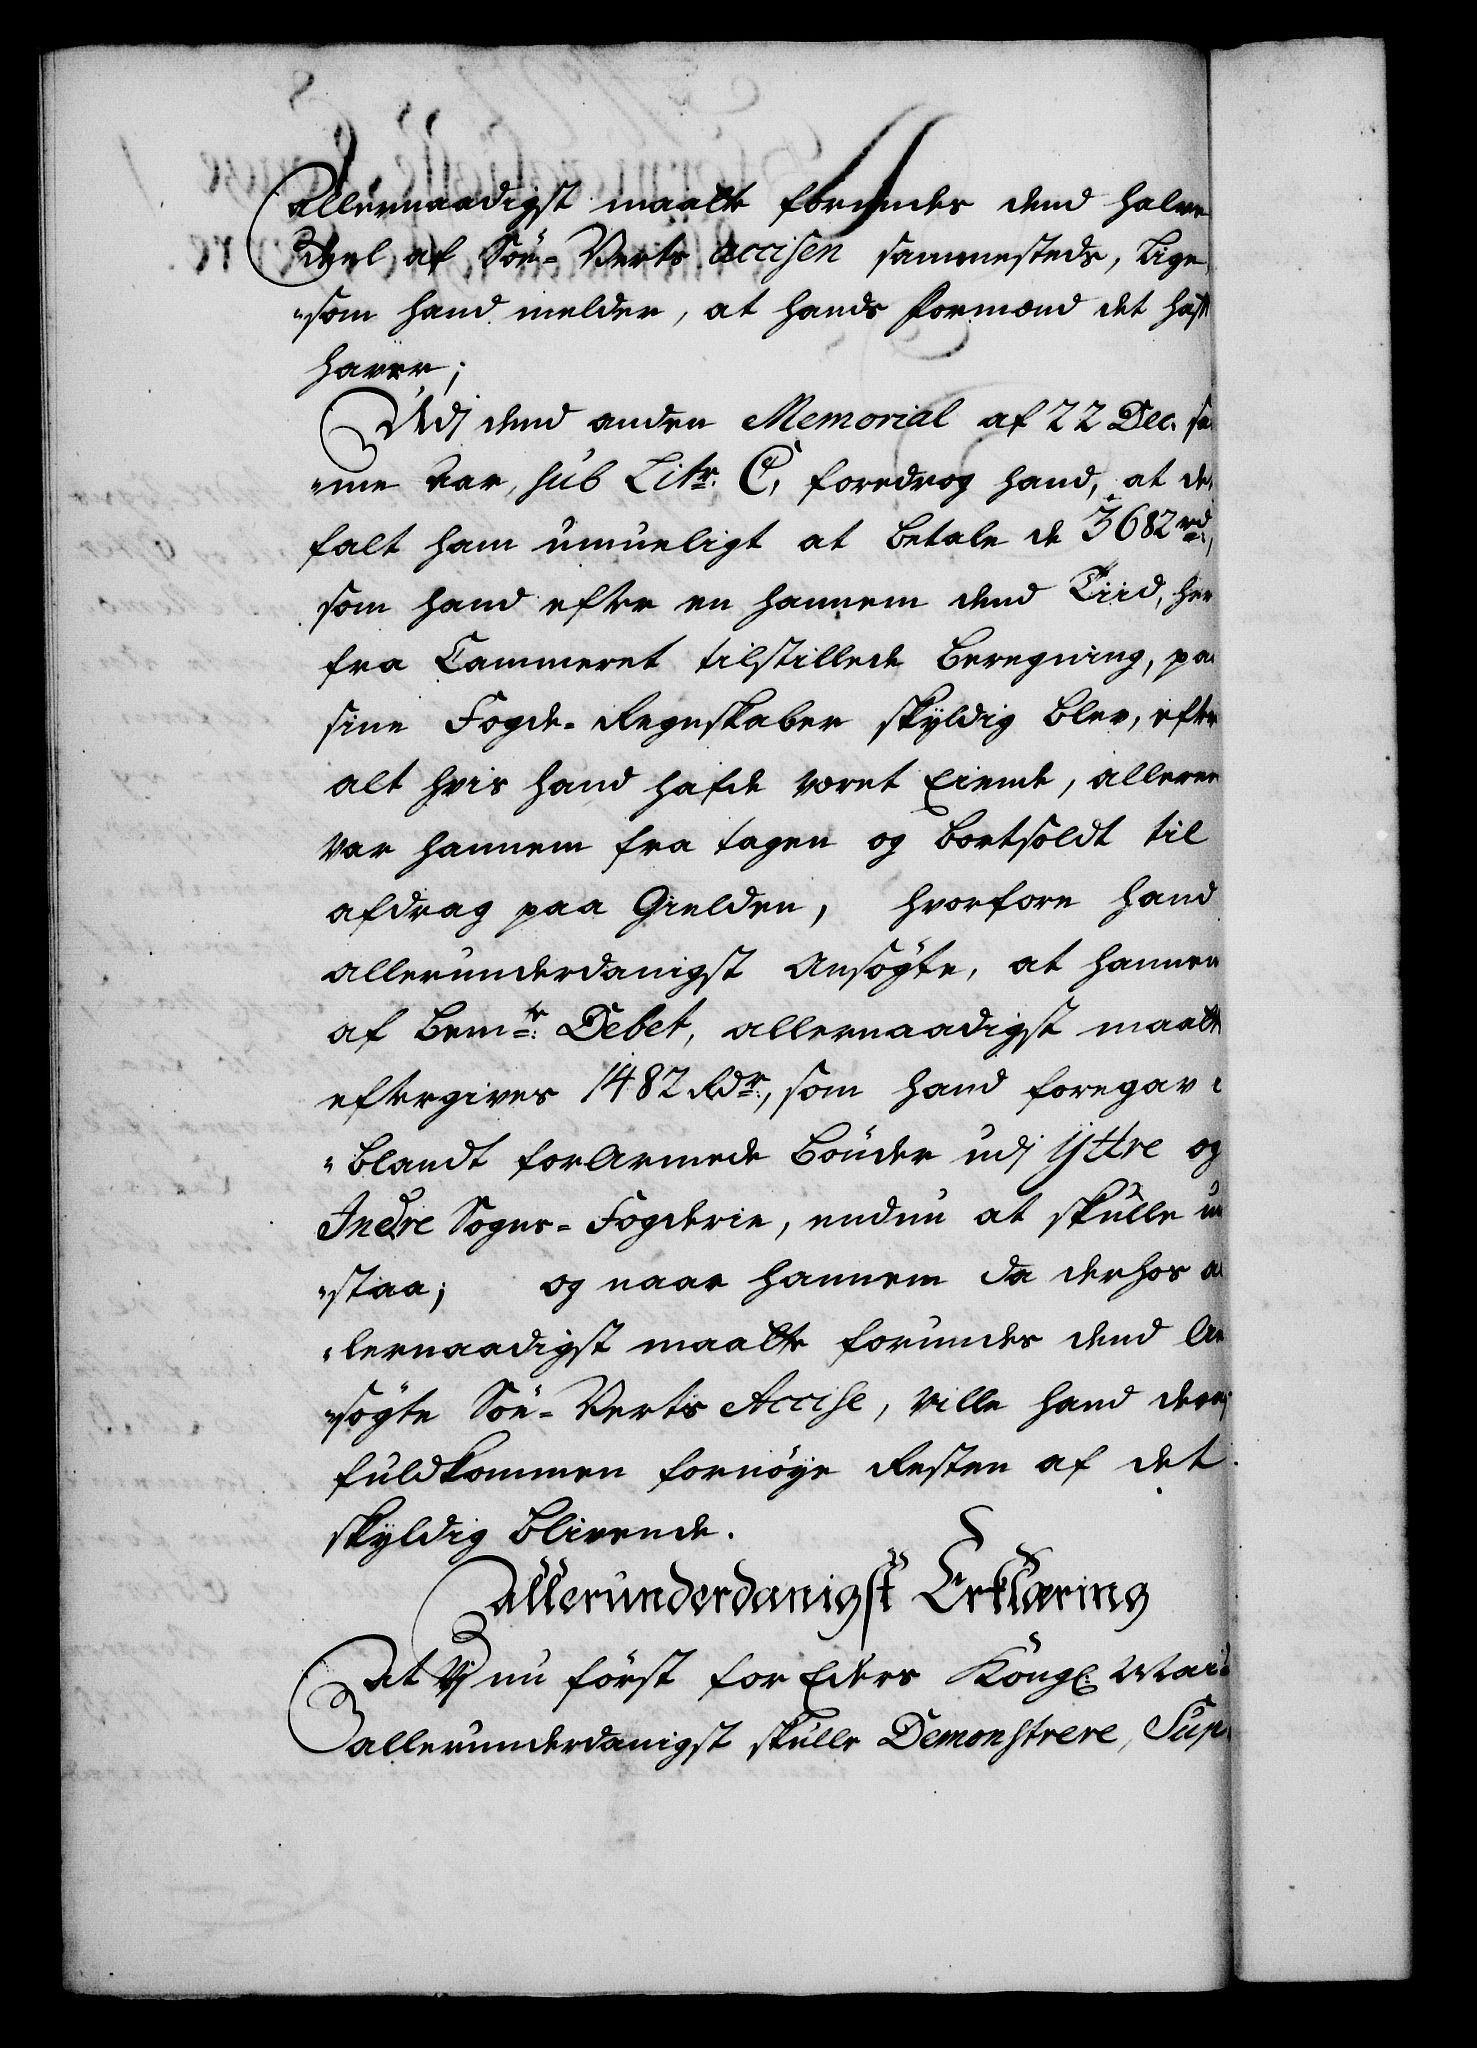 allernaadigst maatte forundes dend halve
deel af Söe-Verts accisen sammesteds, lige
"som hand melder, at hands formænd det haft
haver;
Udj dend anden Memorial af 22 Dec. sa
"me Aar, sub Litr. C, foredrog hand, at det
falt ham umueligt at betale de 3682 rd.,
som hand efter en hannem dend Tiid, her
fra Cammeret tilstillede beregning, paa
sine Fogde-Regnskaber skÿldig blev, efter
alt hvis hand hafde været Eiende, allerede
var hannem fra tagen og bortsoldt til
afdrag paa Gielden, hvorfore hand
allerunderdanigst ansögte, at hannem
af bemte: Debet, allernaadigst maatte
eftergives 1482 Rdr., som hand foregav i
"blandt forarmede bönder udj Ÿttre og
Indre Sogns-Fogderie, endnu at skulle ud
"staa; og naar hannem da derhos al
"lernaadigst maatte forundes dend An
"sögte Söe-Verts Accise, ville hand derved
fuldkommen fornöÿe Resten af det
skÿldig blivende.
allerunderdanigst Erklæring
At Vj nu först for Eders Kongl. Mai
allerunderdanigst skulle Demonstrere, Sup